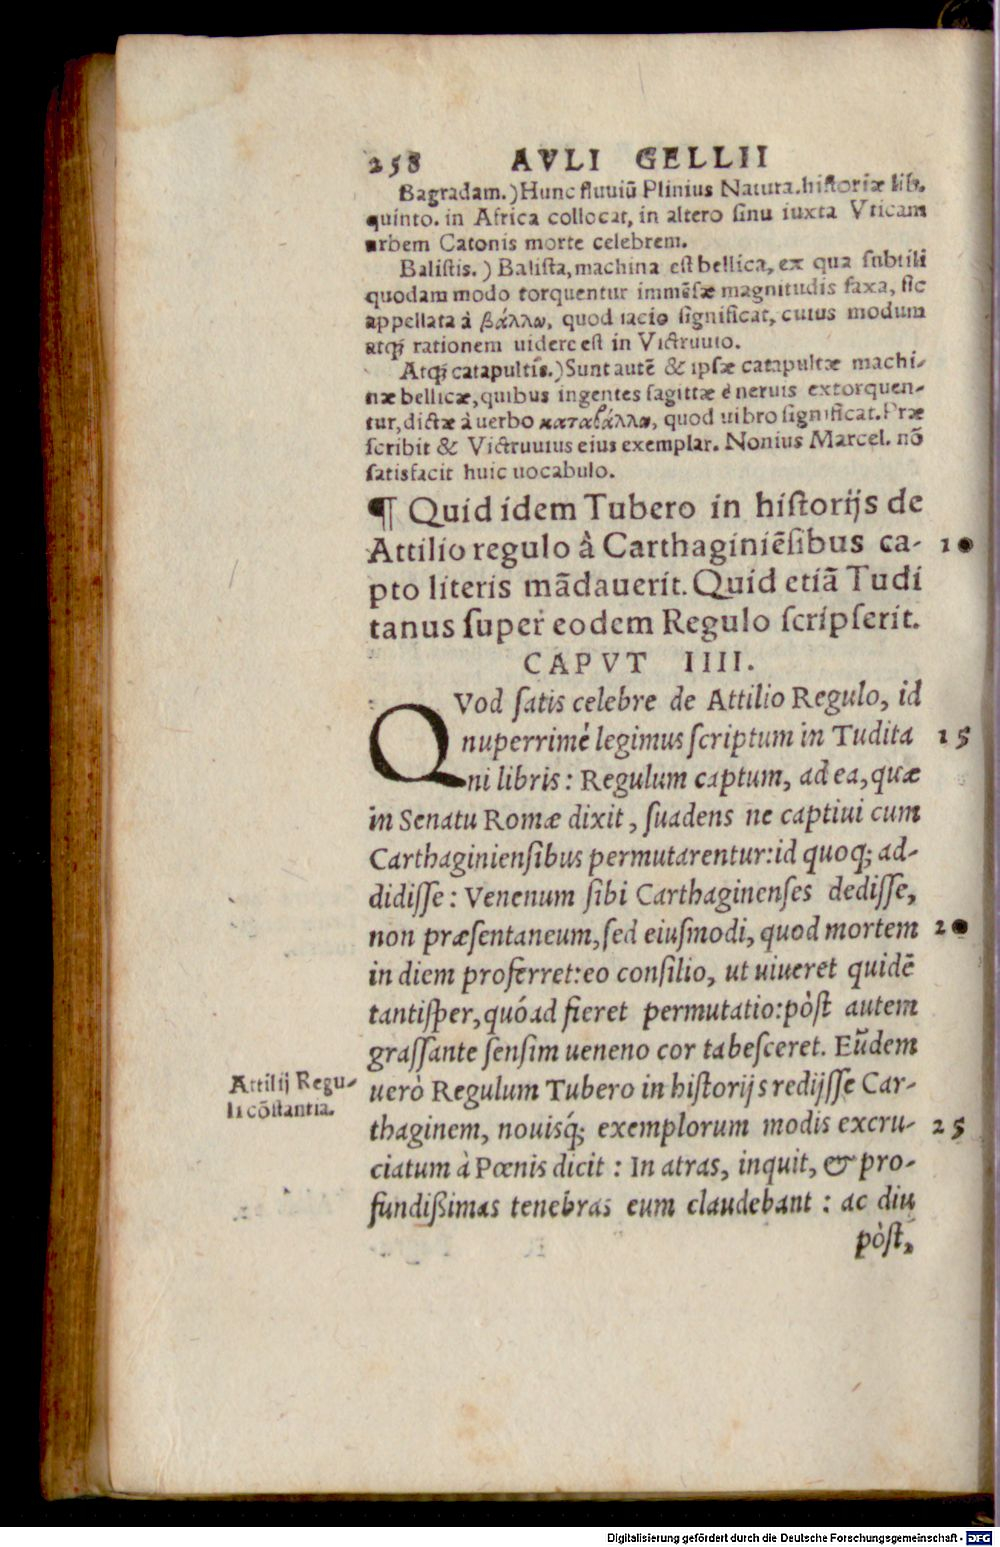 258 AVLI GELLII
Bagradam.) Hunc fluuiũ Plinius Natura. historiæ lib.
quinto. in Africa collocat, in altero sinu iuxta Vticam
urbem Catonis morte celebrem.
Balistis.) Balista, machina est bellica, ex qua subtili
quodam modo torquentur immẽsæ magnitudis saxa, sic
appellata à βάλλω, quod iacio significat, cuius modum
atq; rationem uidere est in Victruuio.
Atq; catapultis.) Sunt autẽ & ipsæ catapultæ machi-
næ bellicæ, quibus ingentes sagittæ è neruis extorquen-
tur, dictæ à uerbo καταβάλλω, quod uibro significat. Præ
scribit & Victruuius eius exemplar. Nonius Marcel. nõ
satisfacit huic uocabulo.
¶ Quid idem Tubero in historijs de
Attilio regulo à Carthaginiẽsibus ca- 10
pto literis mãdauerit. Quid etiã Tudi
tanus super eodem Regulo scripserit.
CAPVT IIII.
QVod satis celebre de Attilio Regulo, id
nuperrimè legimus scriptum in Tudita 15
ni libris: Regulum captum, ad ea, quæ
in Senatu Romæ dixit, suadens ne captiui cum
Carthaginiensibus permutarentur: id quoq; ad-
didisse: Venenum sibi Carthaginenses dedisse,
non præsentaneum, sed eiusmodi, quod mortem 20
in diem proferret: eo consilio, ut uiueret quidẽ
tantisper, quóad fieret permutatio: pòst autem
grassante sensim ueneno cor tabesceret. Eũdem
Attilij Regu-
li cõstantia.
uerò Regulum Tubero in historijs redijsse Car-
thaginem, nouisq́; exemplorum modis excru- 25
ciatum à Pœnis dicit: In atras, inquit, & pro-
fundißimas tenebras eum claudebant: ac diu
pòst,
Digitalisierung gefördert durch die Deutsche Forschungsgemeinschaft - DFG